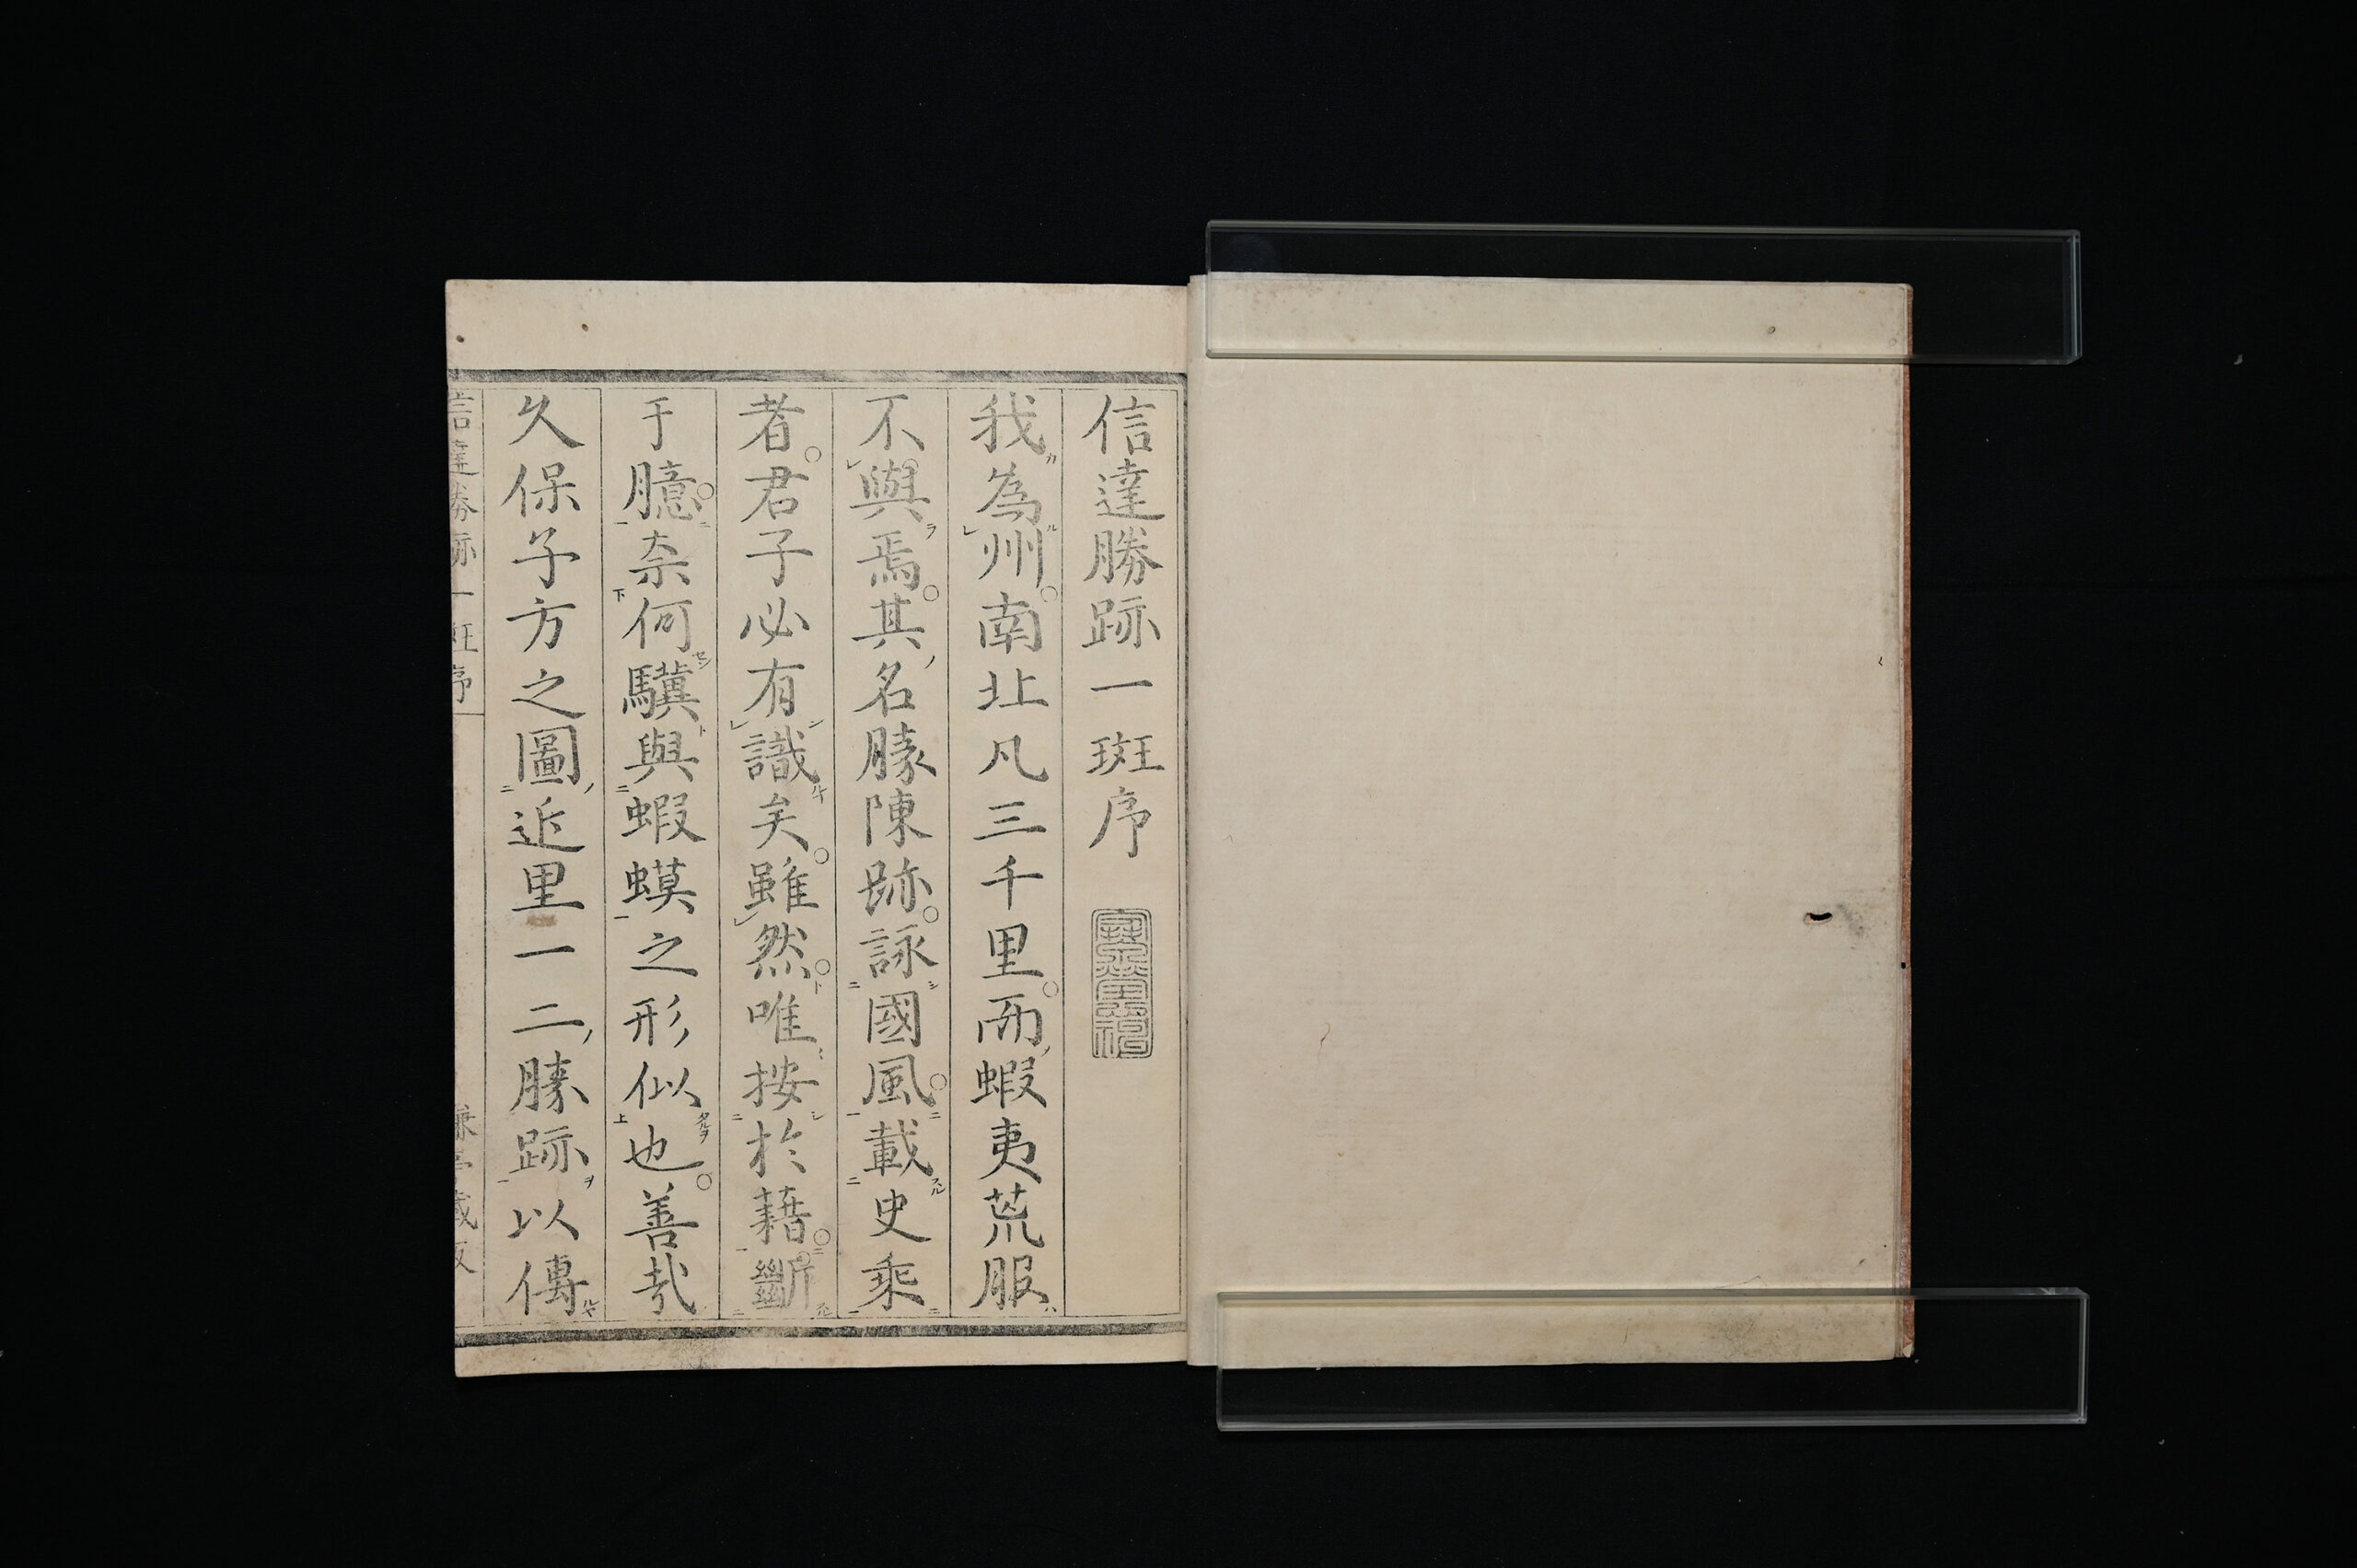 信達勝跡一斑序
我為州南北凡三千里而蝦夷荒服
不與焉其名勝陳跡詠國風載史乘
者君子必有識矣雖然唯按於藉斷
于臆柰何驥與蝦蟆之形似也善哉
久保子方之圖近里一二勝跡以傳
信達勝跡一斑序